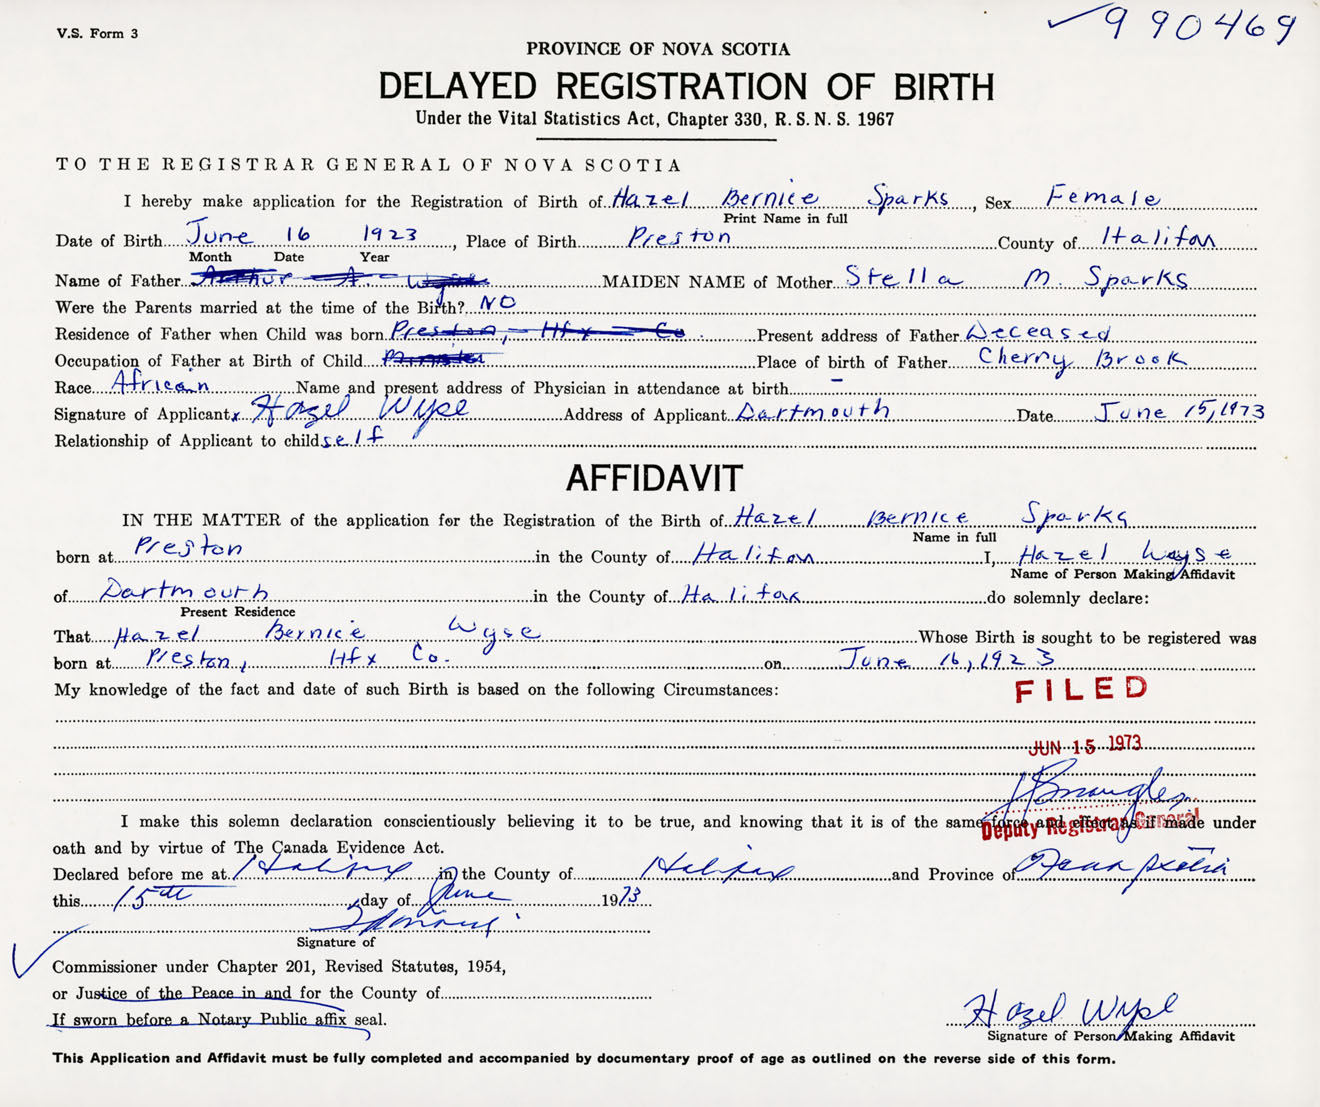 V.S. Form 3
✓990469
PROVINCE OF NOVA SCOTIA
DELAYED REGISTRATION OF BIRTH
Under the Vital Statistics Act, Chapter 330, R. S. N. S. 1967
TO THE REGISTRAR GENERAL OF NOVA SCOTIA
I hereby make application for the Registration of Birth of Hazel Bernice Sparks, Sex Female
Print Name in full
Date of Birth June 16 1923, Place of Birth Preston County of Halifax
Month Date Year
Name of Father Arthur A. MAIDEN NAME of Mother Stella M. Sparks
Were the Parents married at the time of the Birth? NO
Residence of Father when Child was born Preston, Hfx Co Present address of Father Deceased
Occupation of Father at Birth of Child Place of birth of Father Cherry Brook
Race African Name and present address of Physician in attendance at birth –
Signature of Applicant x Hazel Wyse Address of Applicant Dartmouth Date June 15, 1973
Relationship of Applicant to child self
AFFIDAVIT
IN THE MATTER of the application for the Registration of the Birth of Hazel Bernice Sparks
Name in full
born at Preston in the County of Halifax I, Hazel Wyse
Name of Person Making Affidavit
of Dartmouth in the County of Halifax do solemnly declare:
Present Residence
That Hazel Bernice Wyse Whose Birth is sought to be registered was
born at Preston, Hfx Co. on June 16, 1923
My knowledge of the fact and date of such Birth is based on the following Circumstances:
FILED
JUN 15 1973
Deputy Registrar General
I make this solemn declaration conscientiously believing it to be true, and knowing that it is of the same force and effect as if made under
oath and by virtue of The Canada Evidence Act.
Declared before me at Halifax in the County of Halifax and Province of Nova Scotia
this 15th day of June 1973
Signature of
Commissioner under Chapter 201, Revised Statutes, 1954,
or Justice of the Peace in and for the County of
If sworn before a Notary Public affix seal.
Hazel Wyse
Signature of Person Making Affidavit
This Application and Affidavit must be fully completed and accompanied by documentary proof of age as outlined on the reverse side of this form.